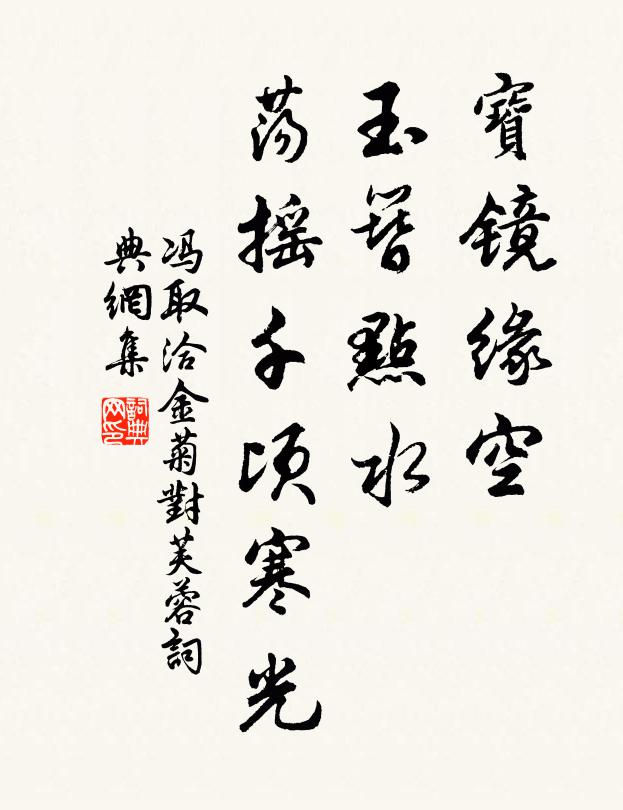 寶鏡緣空
玉簪點水
蕩搖千頃寒光
冯取洽金菊對芙蓉詞
典網集
詞典
网印